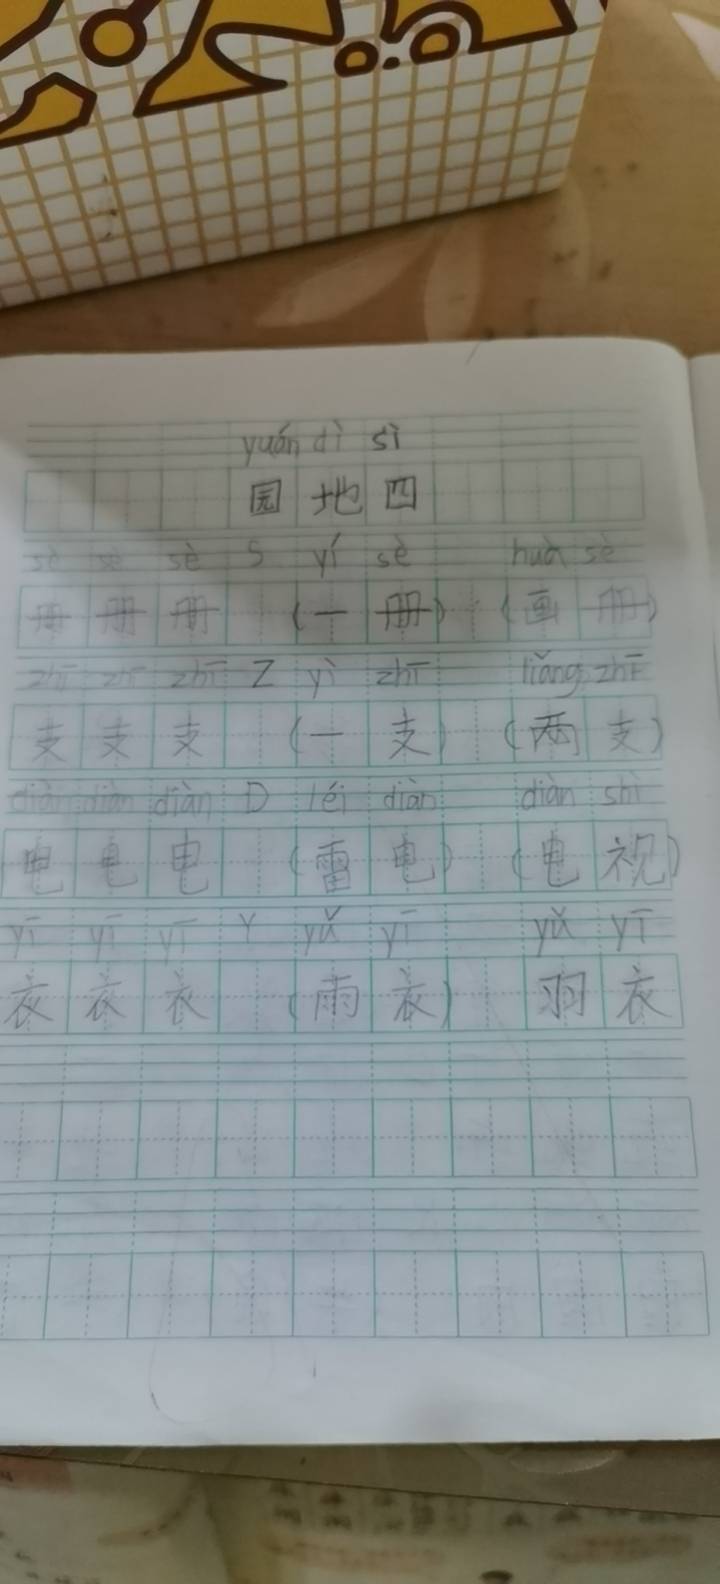 yuán dì sì
园 地 四
sè sè sè S yí sè huà sè
册 册 册 (一 册) (画 册)
zhī zhī zhī Z yì zhī liǎng zhī
支 支 支 (一 支) (两 支)
diàn diàn diàn D léi diàn diàn shì
电 电 电 (雷 电) (电 视)
yī yī yī Y yǔ yī yǔ yī
衣 衣 衣 (雨 衣) 羽 衣